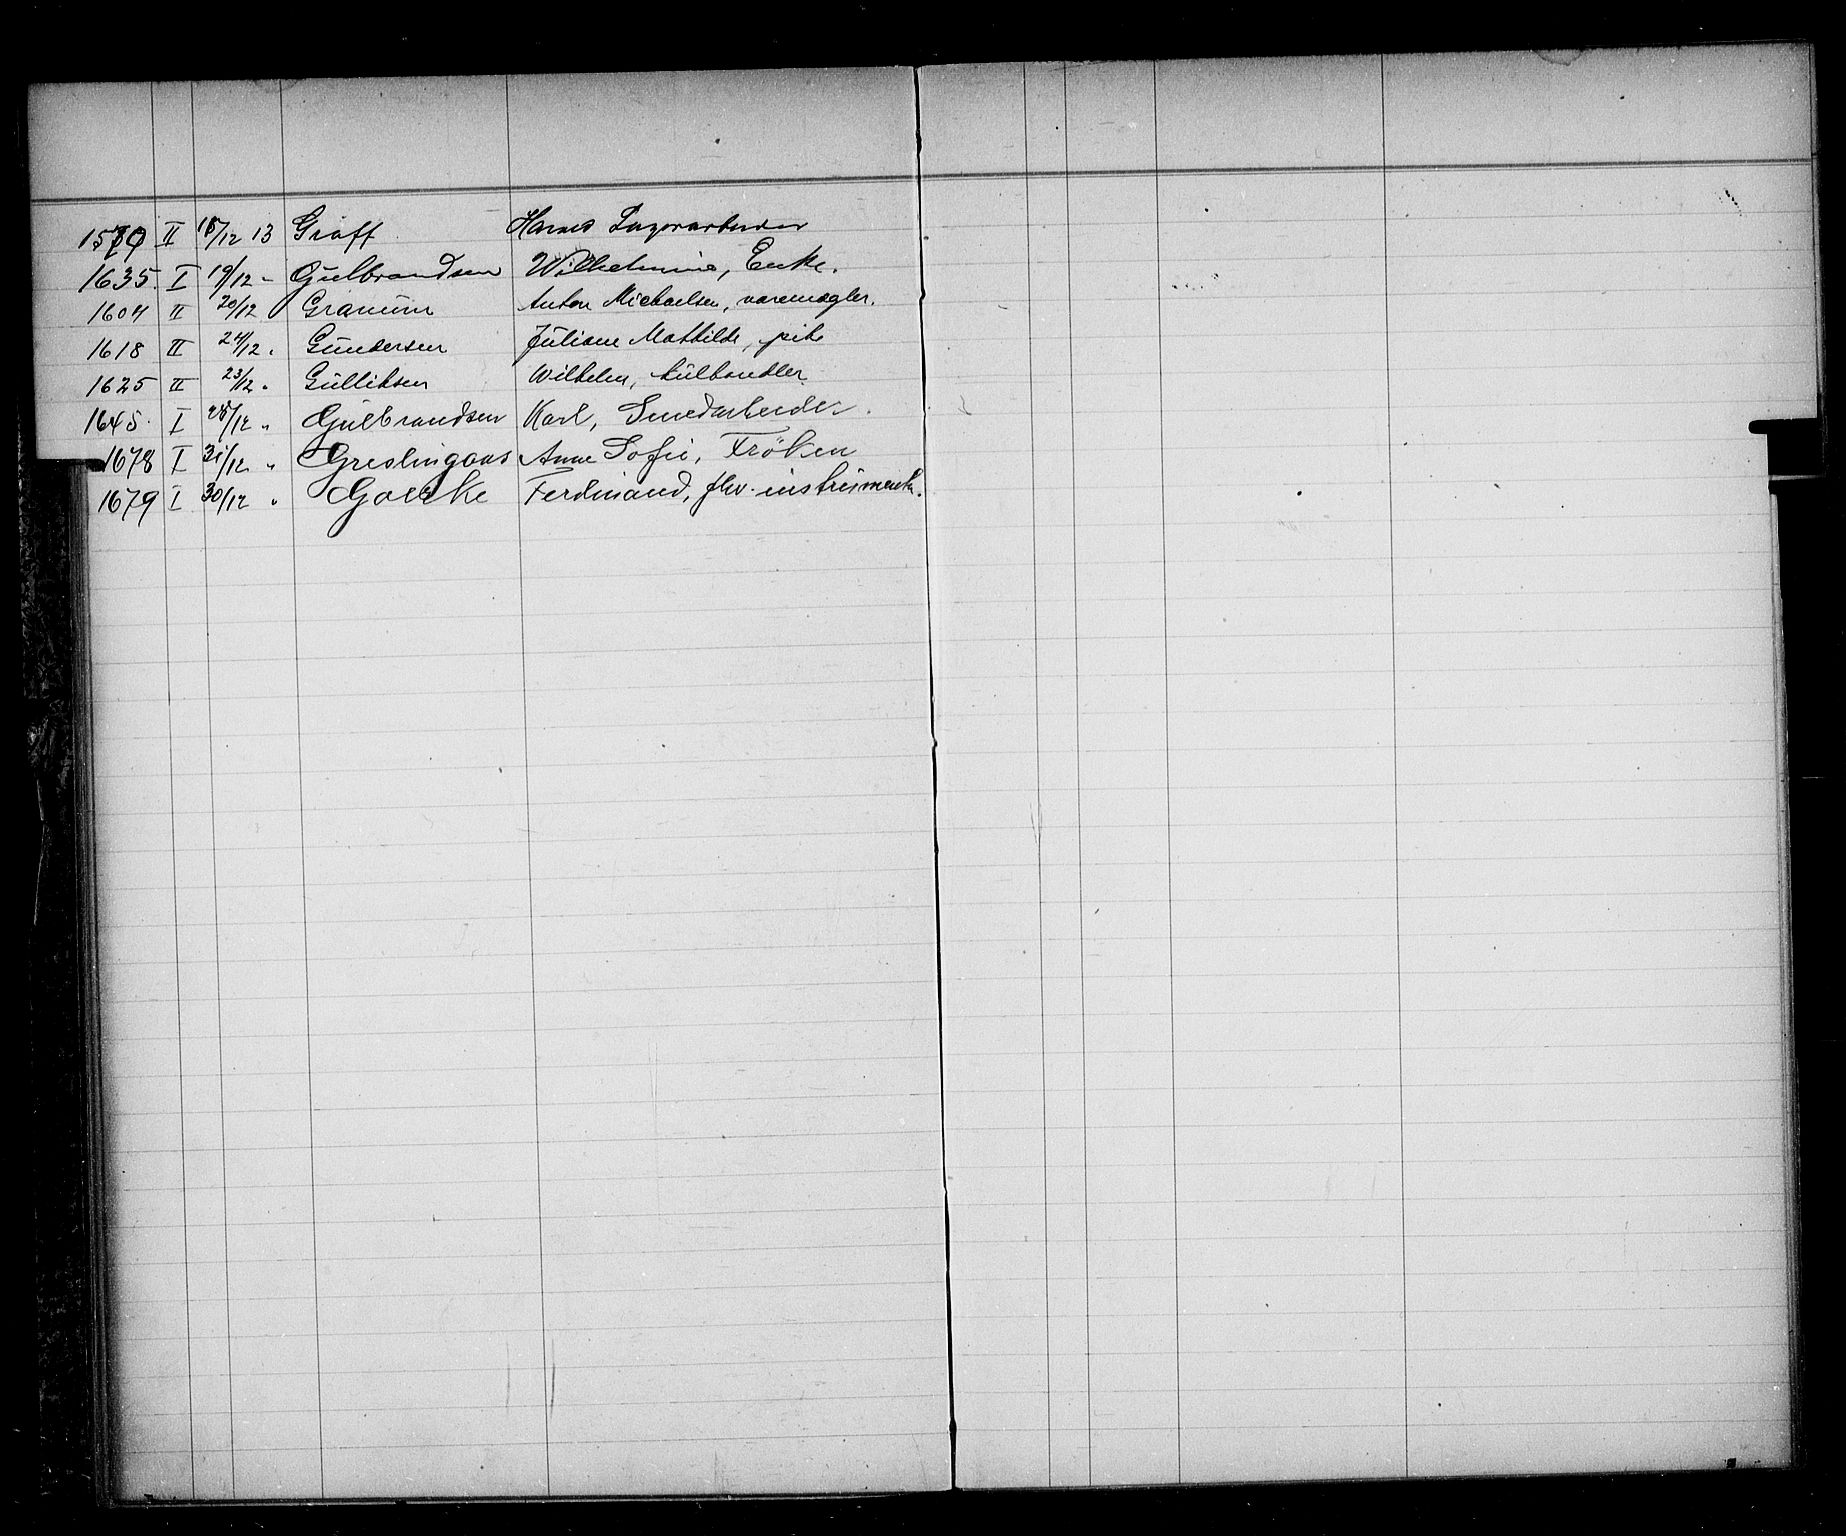 1570 II 18/12 13 Graff Hans Lagerarbeider
1635. I 19/12 - Gulbrandsen Wilhelmine, Enke.
1604 II 20/12 Granum Anton Michaelsen, varemægler.
1618 II 24/12 " Gundersen Juliane Mathilde, pike
1625 II 23/12 " Gulliksen Wilhelm, kulhandler
1645. I 28/12 " Gulbrandsen Karl, Smedarbeider.
1678 I 31/12 " Greslingaas Anne Sofie, Frøken
1679 I 30/12 " Goecke Ferdinand, fhv. instrumentm.